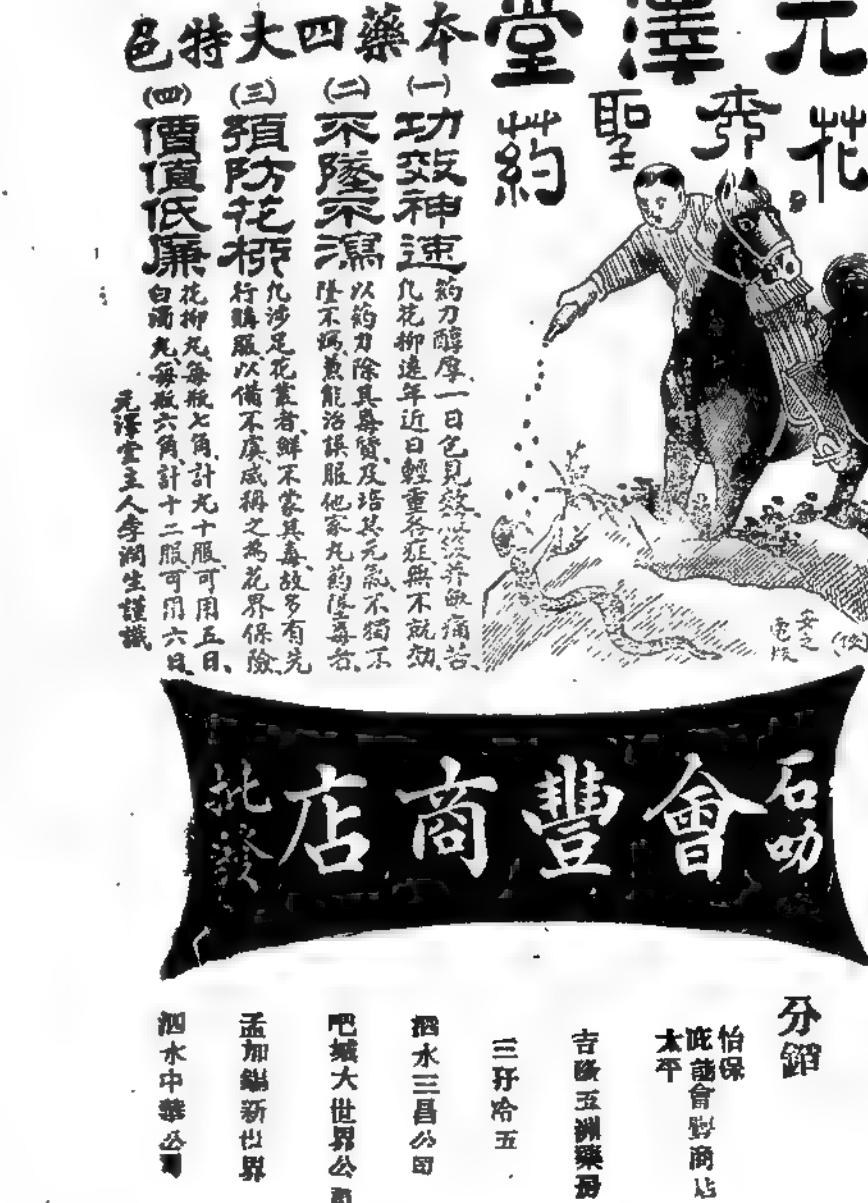 元澤堂
花柳聖药
本藥四大特色
(一)
功效神速
药力醇厚、一日包見效
凡花柳遠年近日輕重各症無不就効、
(二)
不墜不瀉
以药力除其毒質、及培其元氣、不獨不
墜不瀉、兼能治誤服他家丸药墜毒者、
(三)
預防花柳
凡涉足花叢者、鮮不蒙其毒、故多有先
行購服、以備不虞、咸稱之為花界保險、
(四)
價值低廉
花柳丸、每瓶七角、計九十服、可用五日、
白濁丸、每瓶六角、計十二服、可用六日、
元澤堂主人李潤生謹識
石叻
會豐商店
批發
分銷
怡保
太平
吉隆五洲藥房
泗水三昌公司
吧城大世界公司
孟加錫新世界
泗水中華公司